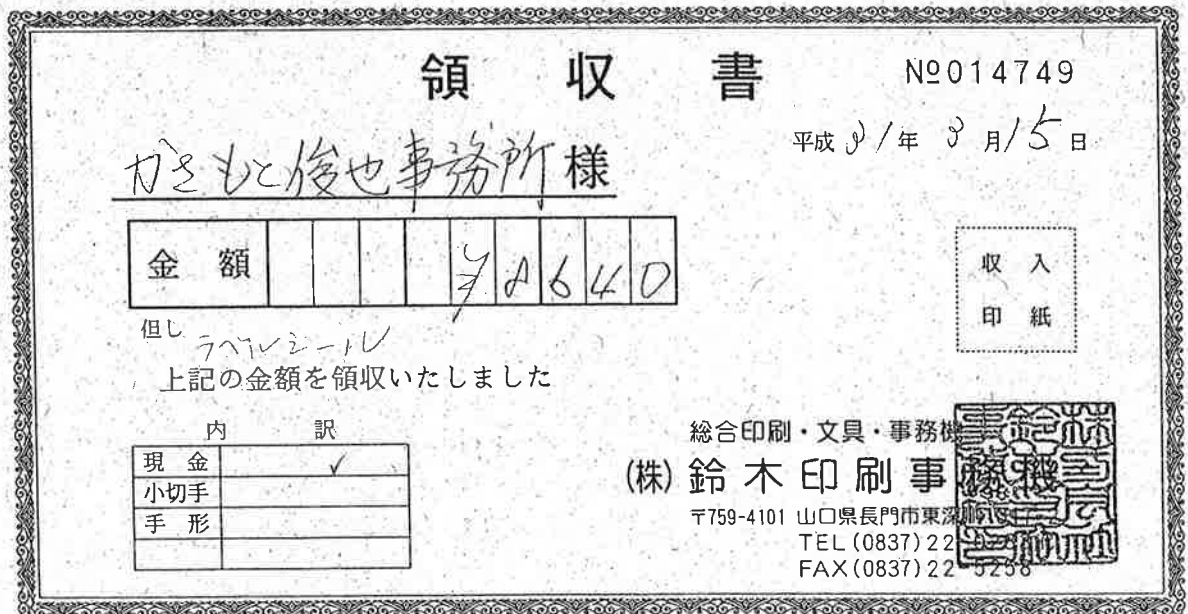 領収書
№014749
平成31年3月15日
かきもと俊也事務所様
金額 ¥8640
収入
印紙
但し ラベルシール
上記の金額を領収いたしました
内訳
現金 ✓
小切手
手形
総合印刷・文具・事務機
(株)鈴木印刷事務機
〒759-4101 山口県長門市東深
TEL(0837)22
FAX(0837)22-5258